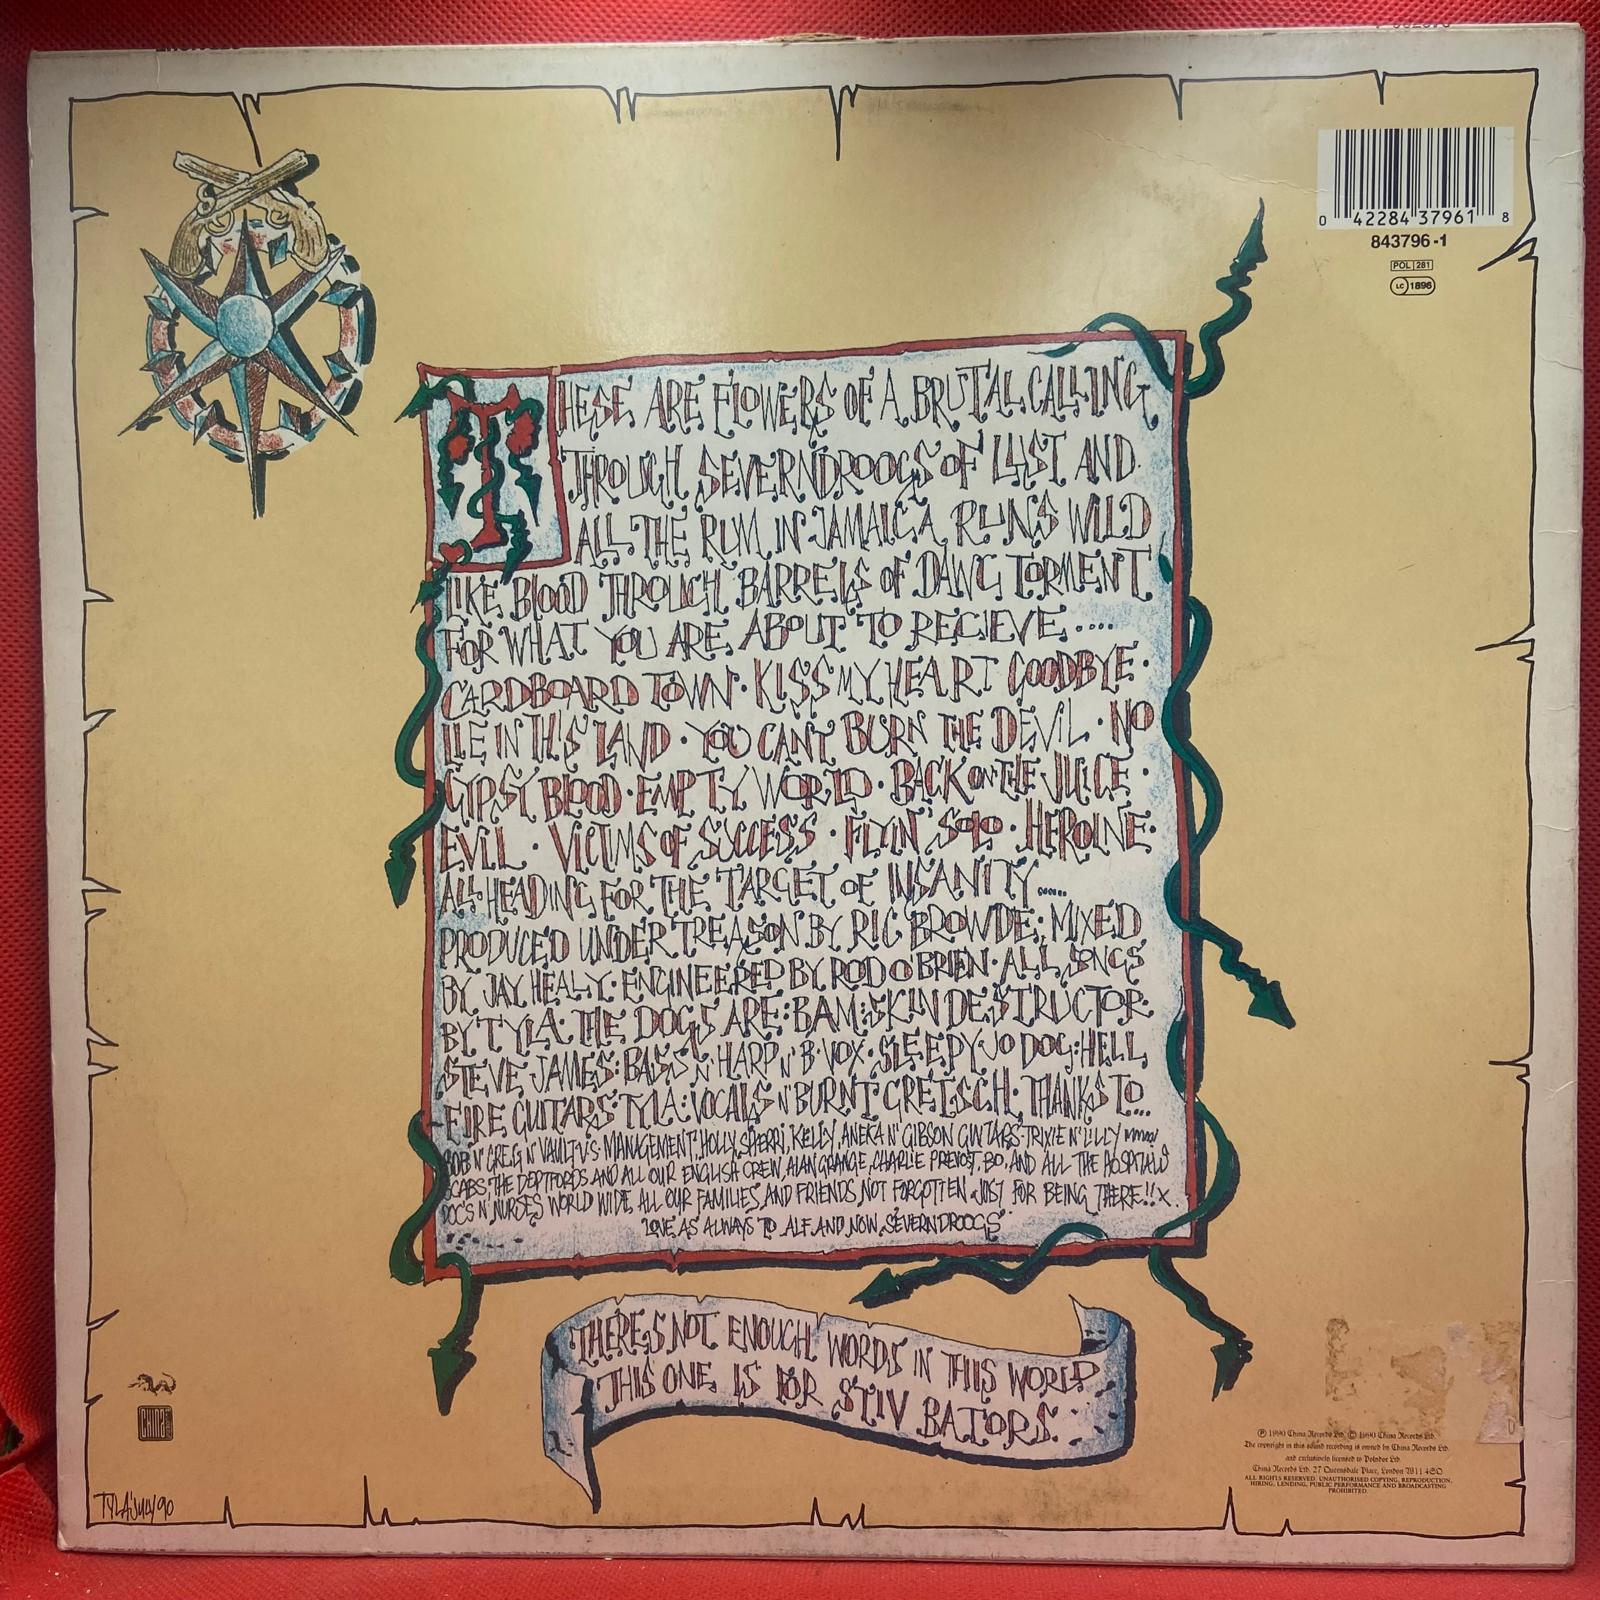 0 42284 37961 8
843796-1
POL 281
LC 1896
THESE ARE FLOWERS OF A BRUTAL CALLING
THROUGH SEVERNDROOGS OF LUST AND
ALL THE RUM IN JAMAICA RUNS WILD
LIKE BLOOD THROUGH BARRELS OF DAWG TORMENT
FOR WHAT YOU ARE ABOUT TO RECIEVE....
CARDBOARD TOWN · KISS MY HEART GOODBYE ·
LIE IN THIS LAND · YOU CAN'T BURN THE DEVIL · NO
GYPSY BLOOD · EMPTY WORLD · BACK ON THE JUICE ·
EVIL · VICTIMS OF SUCCESS · FLYIN' SOLO · HEROINE ·
ALL HEADING FOR THE TARGET OF INSANITY.....
PRODUCED UNDER TREASON BY RIC BROWDE: MIXED
BY JAY HEALY · ENGINEERED BY ROD O'BRIEN · ALL SONGS
BY TYLA · THE DOGS ARE: BAM: SKIN DESTRUCTOR ·
STEVE JAMES: BASS N' HARP N' B·VOX · SLEEPY JO DOG: HELL
FIRE GUITARS · TYLA: VOCALS N' BURNT GRETSCH · THANKS TO...
BOB N' GREG N' VAULT V.S. MANAGEMENT, HOLLY, SHERRI, KELLY, ANEKA N' GIBSON GUITARS · TRIXIE N' LILLY
SCABS, THE DEPTFORDS AND ALL OUR ENGLISH CREW, ALAN GRANGE, CHARLIE PREVOST, BO, AND ALL THE HOSPITALS
DOCS N' NURSES WORLD WIDE, ALL OUR FAMILIES AND FRIENDS NOT FORGOTTEN JUST FOR BEING THERE!! X
LOVE AS ALWAYS TO ALF AND NOW SEVERNDROOGS
THERE'S NOT ENOUGH WORDS IN THIS WORLD
THIS ONE IS FOR STIV BATORS.
CHINA
TYLA JULY 90
℗ 1990 China Records Ltd. © 1990 China Records Ltd.
The copyright in this sound recording is owned by China Records Ltd.
and exclusively licensed to Polydor Ltd
China Records Ltd. 27 Queensdale Place, London W11 4SQ
ALL RIGHTS RESERVED. UNAUTHORISED COPYING, REPRODUCTION,
HIRING, LENDING, PUBLIC PERFORMANCE AND BROADCASTING
PROHIBITED.